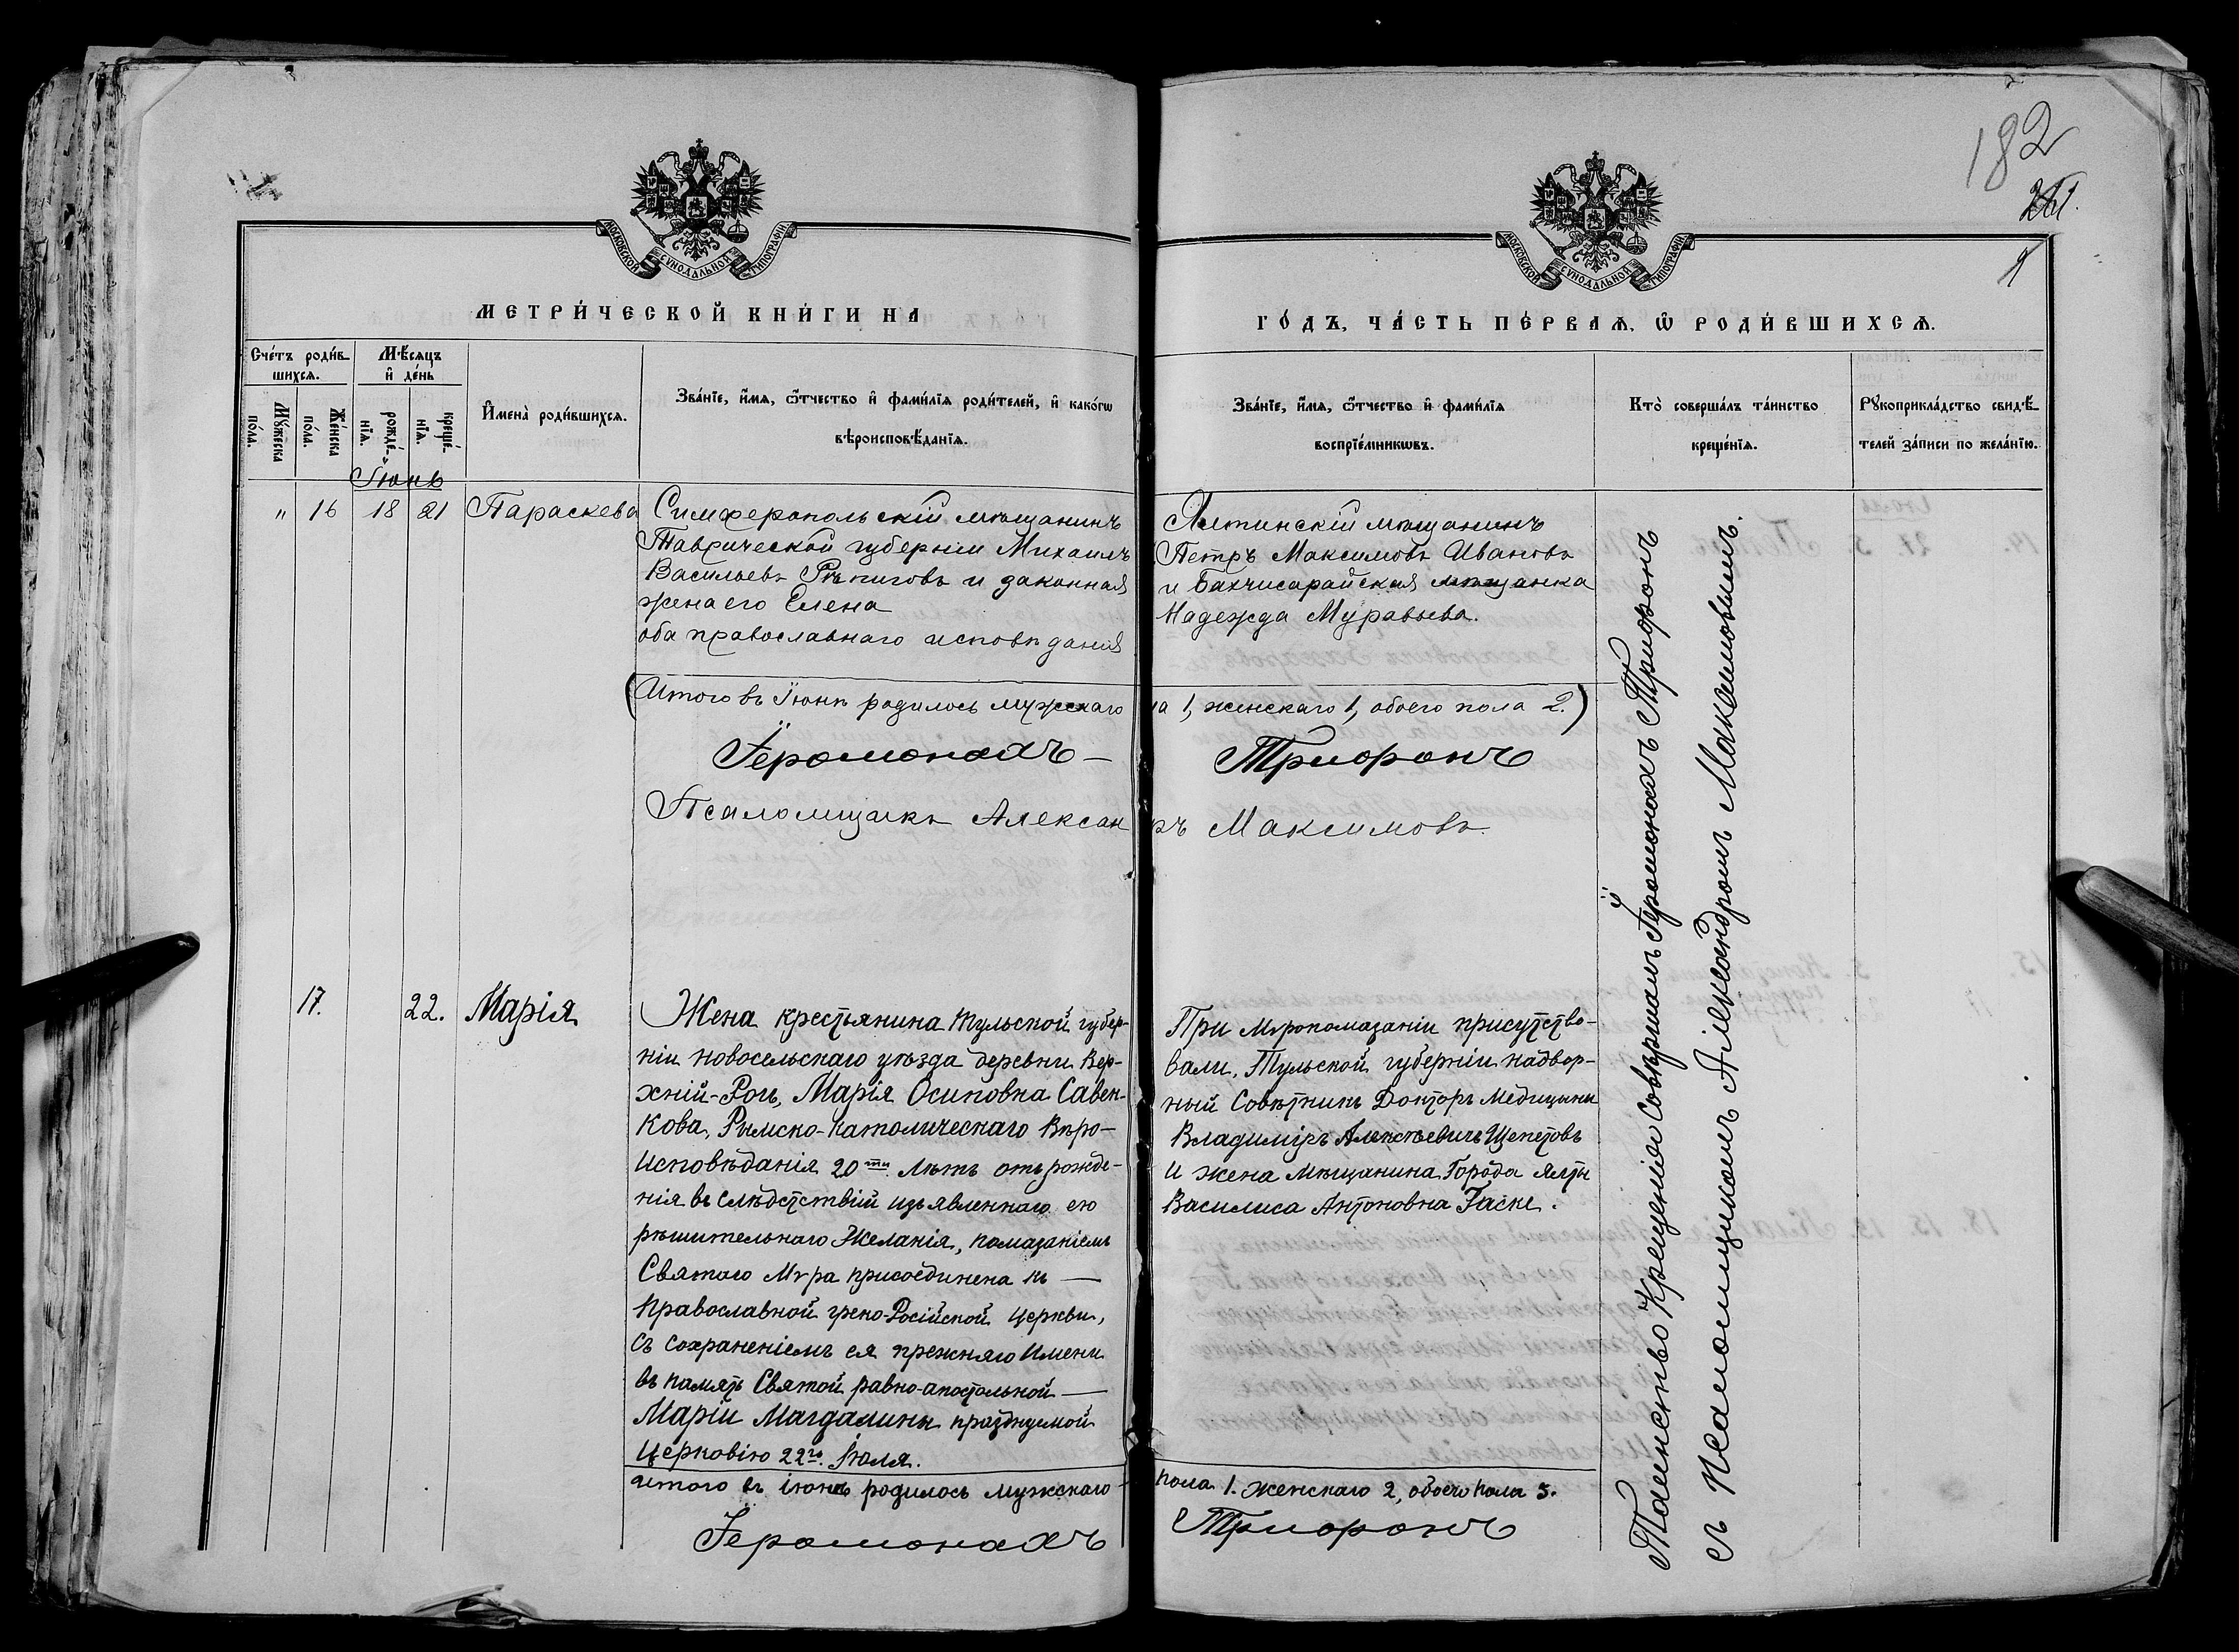 182
261.
МОСКОВСКОЙ СѴНОДАЛЬНОЙ ТИПОГРАФІИ
МОСКОВСКОЙ СѴНОДАЛЬНОЙ ТИПОГРАФІИ
МЕТРИ́ЧЕСКОЙ КНИ́ГИ НА
ГО́ДЪ, ЧА́СТЬ ПЕ́РВАѦ, Ѽ РОДИ́ВШИХСѦ.
Сче́тъ роди́в-
шихсѧ.
Мꙋ́жеска
по́ла.
Же́нска
по́ла.
Мѣ́сѧцъ
и҆ де́нь
рожде́-
нїѧ.
креще́-
нїѧ.
И҆мена̀ роди́вшихсѧ.
Зва́нїе, и҆́мѧ, ѻ҆́тчество и҆ фами́лїѧ роди́телей, и҆ како́гѡ
вѣроисповѣ́данїѧ.
Зва́нїе, и҆́мѧ, ѻ҆́тчество и҆ фами́лїѧ
воспрїе́мникѡвъ.
Кто̀ соверша́лъ та́инство
креще́нїѧ.
Рꙋкоприкла́дство свидѣ́-
телей за́писи по жела́нїю.
Іюнь
" 16 18 21 Параскева
Симферопольскій мѣщанинъ
Таврической губерніи Михаилъ
Васильевъ Рѣпиговъ и законная
жена его Елена
оба православнаго исповѣданія
Ялтинскій мѣщанинъ
Петръ Максимовъ Ивановъ
и Бахчисарайская мѣщанка
Надежда Муравьева.
(Итого въ Іюнѣ родилось мужскаго
ла 1, женскаго 1, обоего пола 2.)
Іеромонахъ – Трифонъ
Псаломщикъ Алексан
ръ Максимовъ
17. 22. Марія
Жена крестьянина Тульской губер-
ніи новосельскаго уѣзда деревни Вер-
хній-Рогъ, Марія Осиповна Савен-
кова, Римско-Католическаго Вѣро-
Исповѣданія 20ти Лѣтъ отъ рожде-
нія въ слѣдствій изъявленнаго ею
рѣшительнаго Желанія, помазаніемъ
Святаго Мѵра присоединена къ —
Православной греко-Російской Церкви,
съ сохраненіемъ ея прежняго Имени
въ память Святой равно-апостольной —
Маріи Магдалины празднуемой
Церковію 22го Іюля.
При Мѵропомазаніи присутство-
вали, Тульской губерніи надвор-
ный Совѣтникъ Докторъ Медицины
Владиміръ Алексѣевичъ Щепетовъ
и жена Мѣщанина Города Ялты
Василиса Антоновна Гаске.
итого въ іюнѣ родилось мужскаго
пола 1. женскаго 2, обоего пола 3.
Іеромонахъ Трифонъ
Таинство Крещенія совѣршалъ Іеромонахъ Трифонъ
съ Псаломщикомъ Александромъ Максимовымъ.